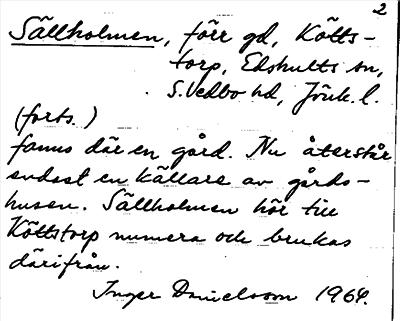 2
Sällholmen, förr gd, Kötts-
torp, Edshults sn,
S. Vedbo hd, Jönk. l.
(forts.)
fanns där en gård. Nu återstår
endast en källare av gårds-
husen. Sällholmen hör till
Köttstorp numera och brukas
därifrån.
Inger Danielsson 1964.